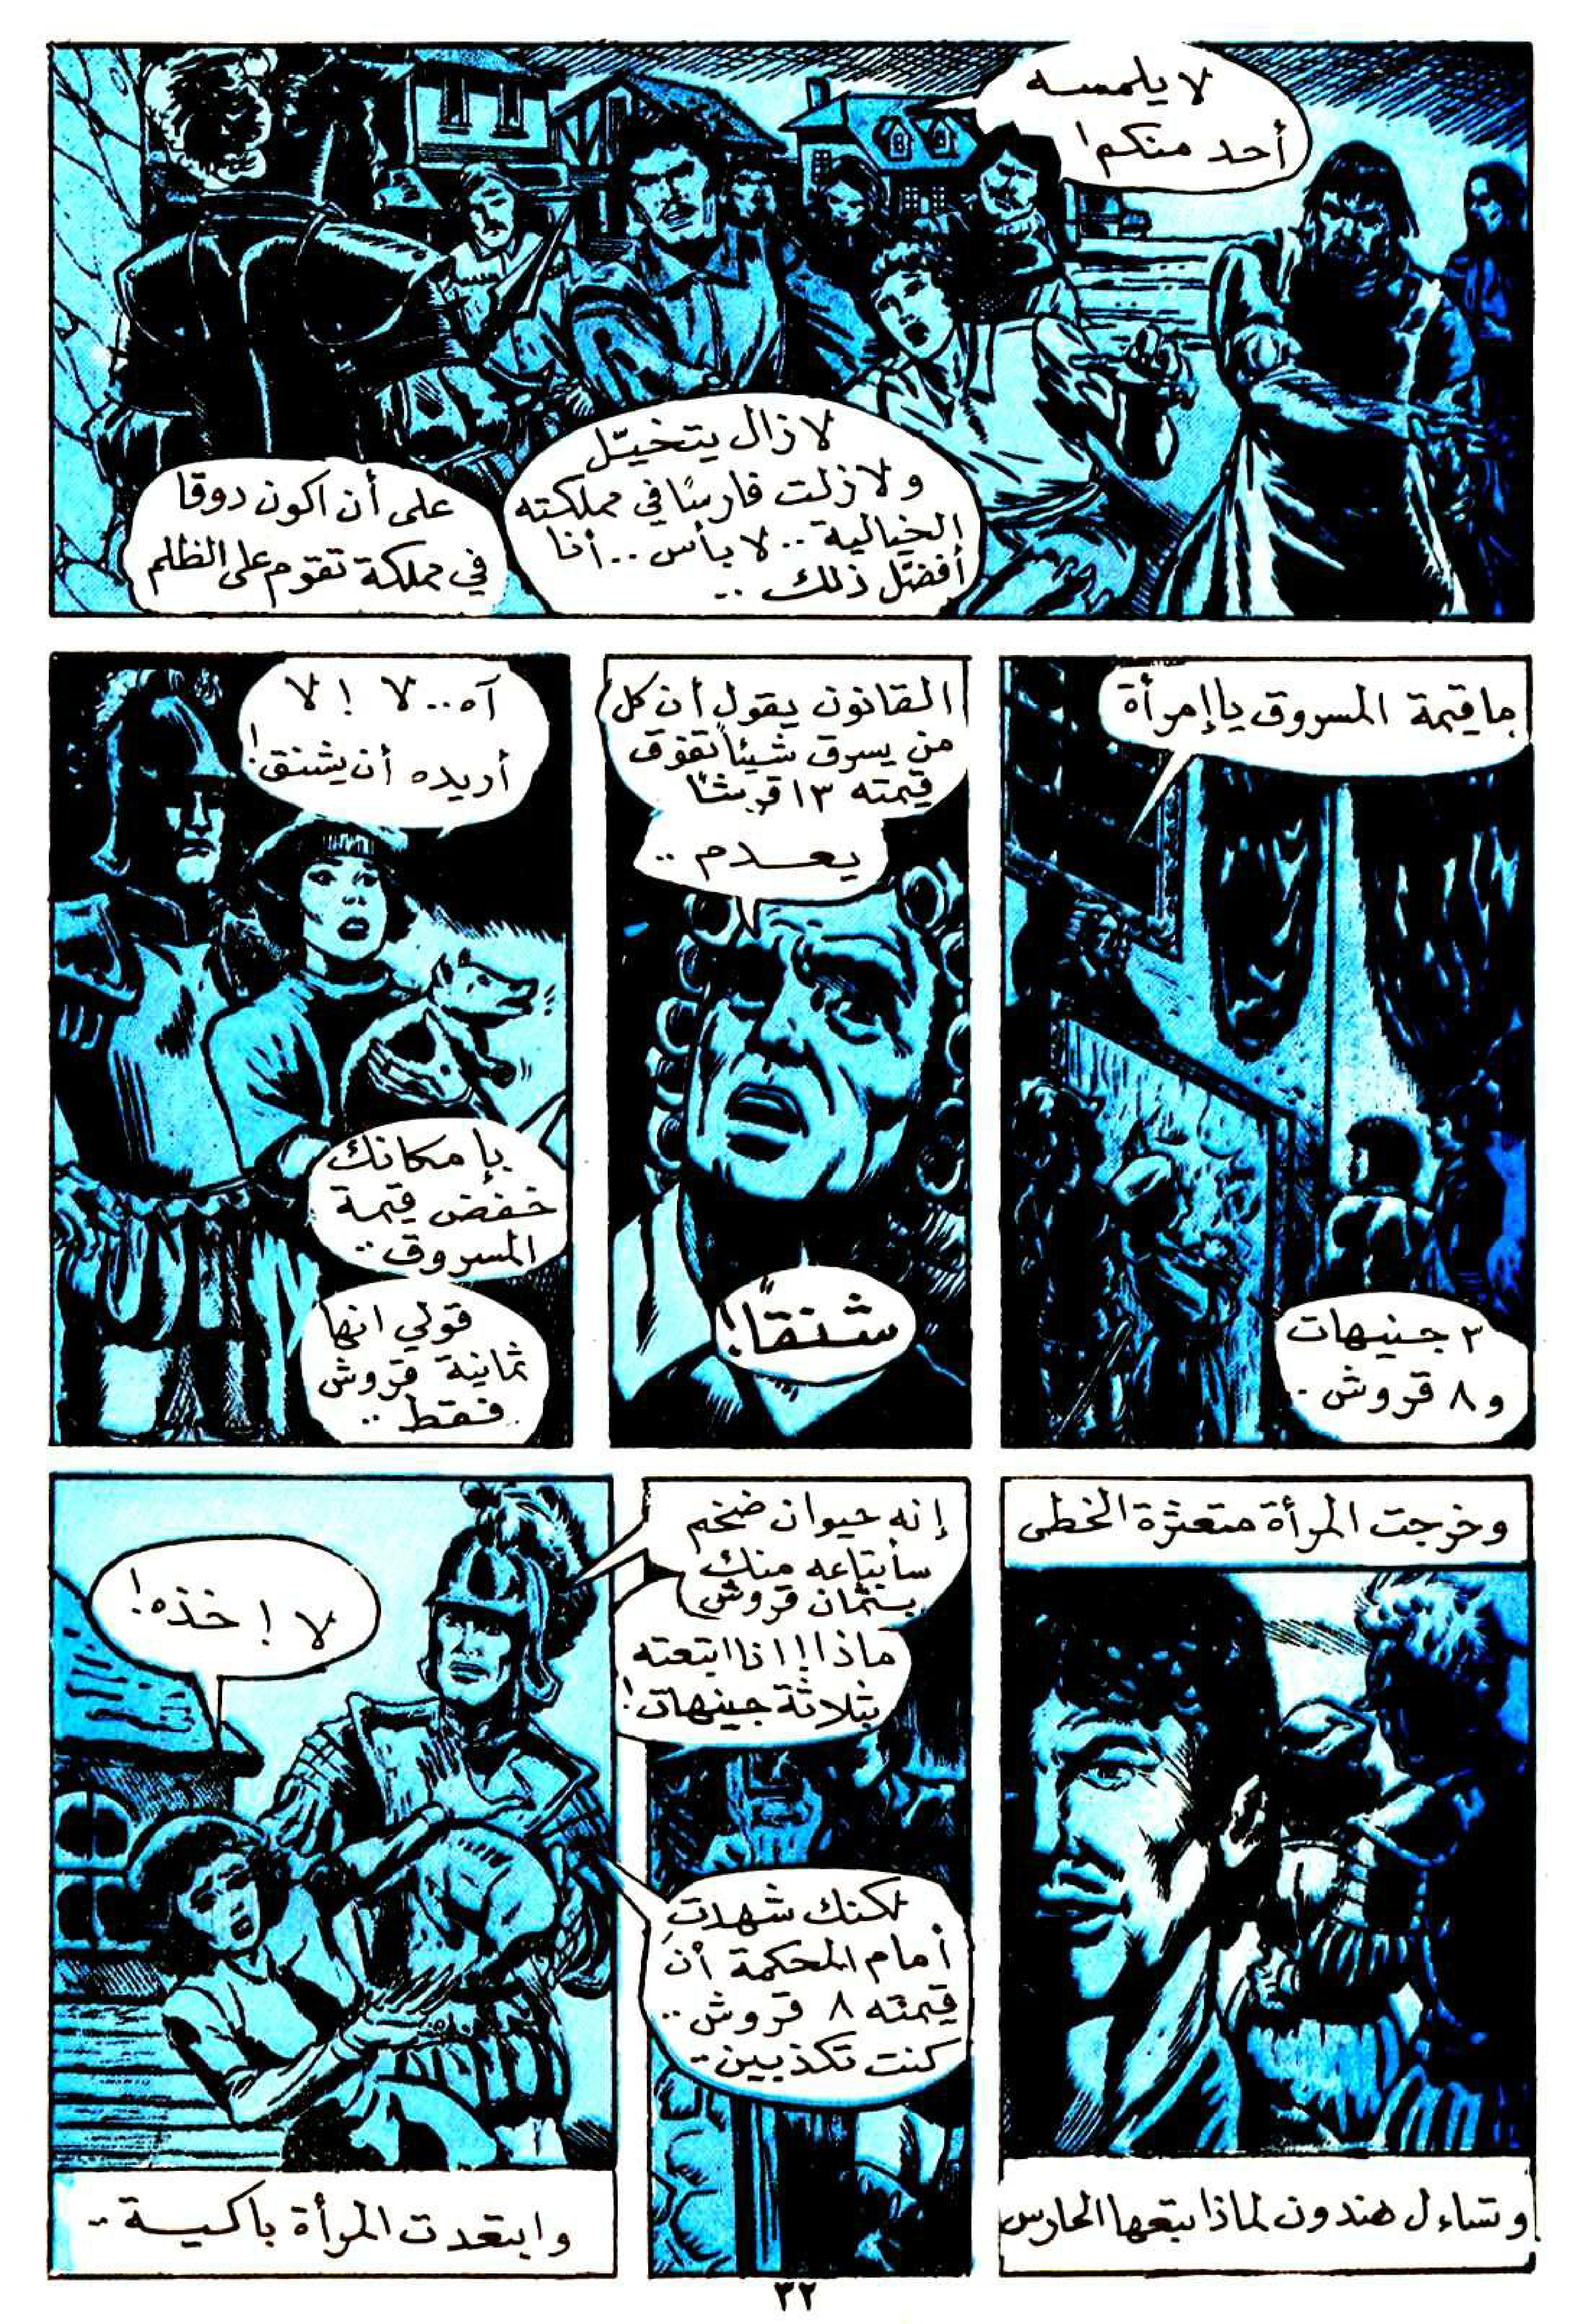 لا يلمسه
أحد منكم!
لا زال يتخيّل
ولا زلت فارسًا في مملكته
الخيالية .. لا بأس .. أنا
أفضّل ذلك ..
على أن اكون دوقا
في مملكة تقوم على الظلم
ما قيمة المسروق يا إمرأة
٣ جنيهات
و ٨ قروش .
القانون يقول أن كل
من يسرق شيئاً تفوق
قيمته ١٣ قرشًا
يعدم ..
شنقًا!
آه .. لا ! لا
أريده أن يشنق!
بإمكانك
خفض قيمة
المسروق ..
قولي انها
ثمانية قروش
فقط ..
وخرجت المرأة متعثرة الخطى
وتساءل هندون لماذا يتبعها الحارس
إنه حيوان ضخم
سأبتاعه منك
بثمان قروش
ماذا!! انا ابتعته
بثلاثة جينهات!
لكنك شهدتِ
أمام المحكمة أن
قيمته ٨ قروش ..
كنت تكذبين ..
لا ! خذه!
وابتعدت المرأة باكية ..
٣٢